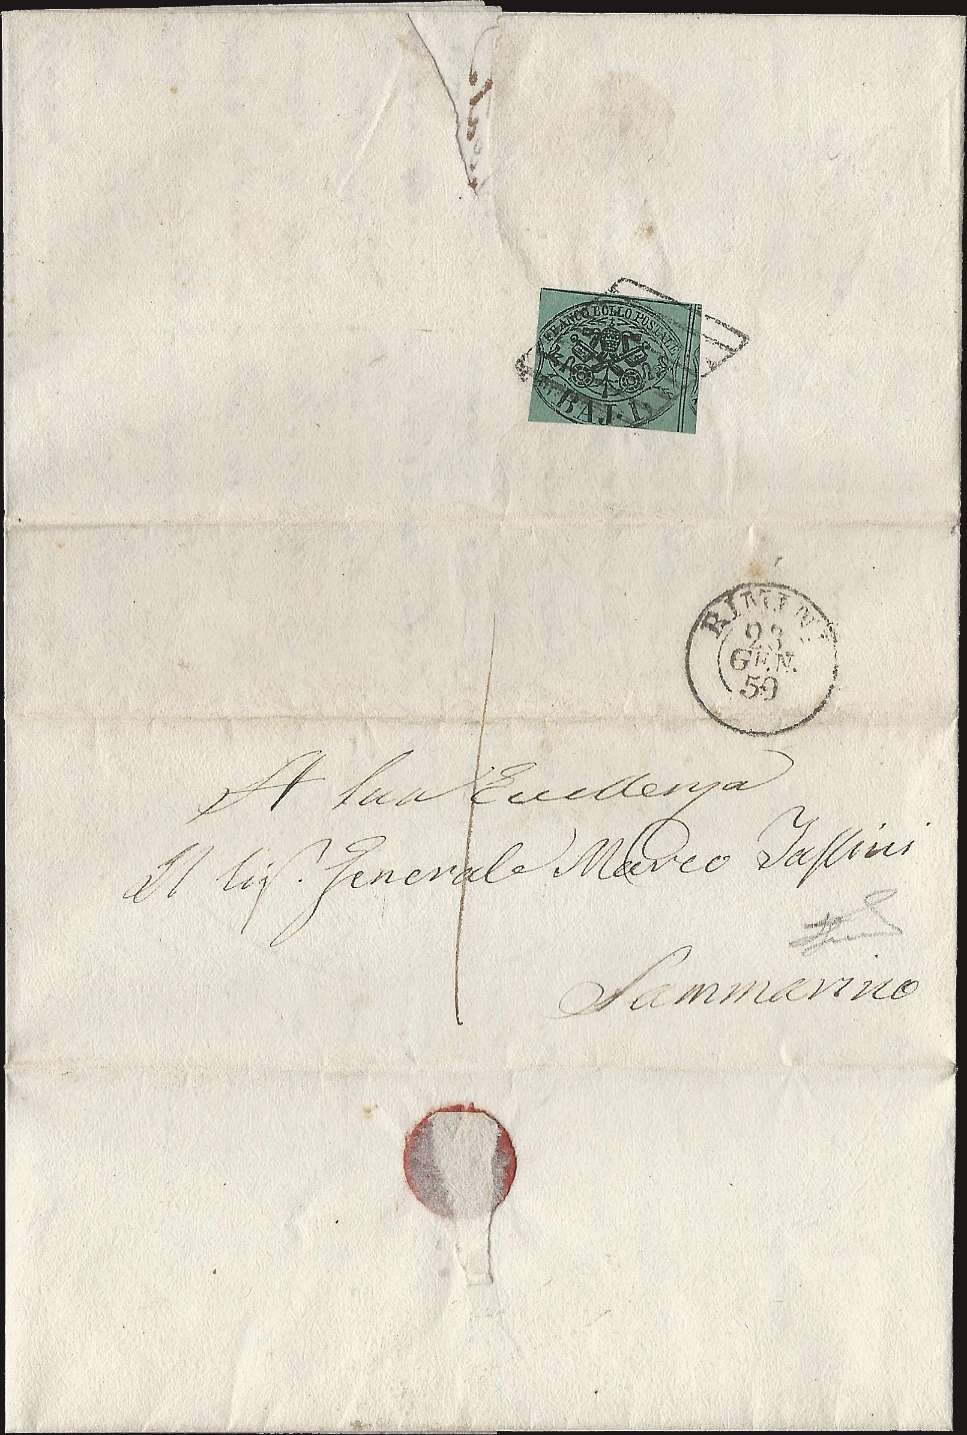 FRANCO BOLLO POSTALE
BAJ. 1
RIMINI
23
GEN.
59
A Sua Eccellenza
Il Sigr. Generale Marco Taſsini
Sammarino